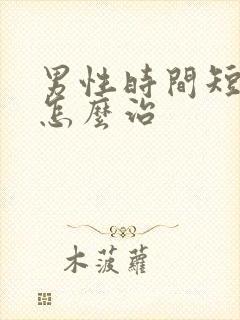 男性時間短
怎麼治
木菠蘿